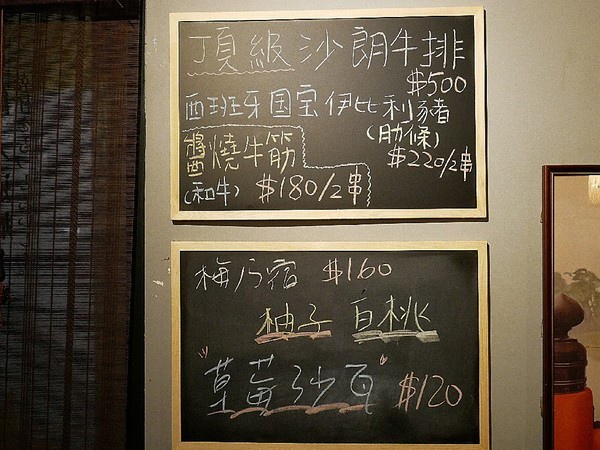 頂級沙朗牛排
$500
西班牙国宝伊比利豬
(肋條)
$220/2串
醬燒牛筋
(和牛) $180/2串
梅乃宿 $160
柚子 白桃
"草莓沙瓦" $120